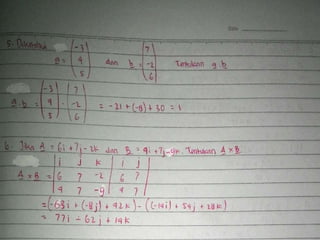 5. Diketahui a = (-3 4 5) dan b = (7 -2 6) Tentukan a.b
a.b = (-3 4 5) . (7 -2 6) = -21 + (-8) + 30 = 1
6. Jika A = 6i + 7j - 2k dan B = 4i + 7j - 9k. Tentukan A × B
A × B = | i j k | i j
6 7 -2 | 6 7
4 7 -9 | 4 7
= (-63i + (-8j) + 42k) - (-14i) + 54j + 28k)
= 77i - 62j + 14k